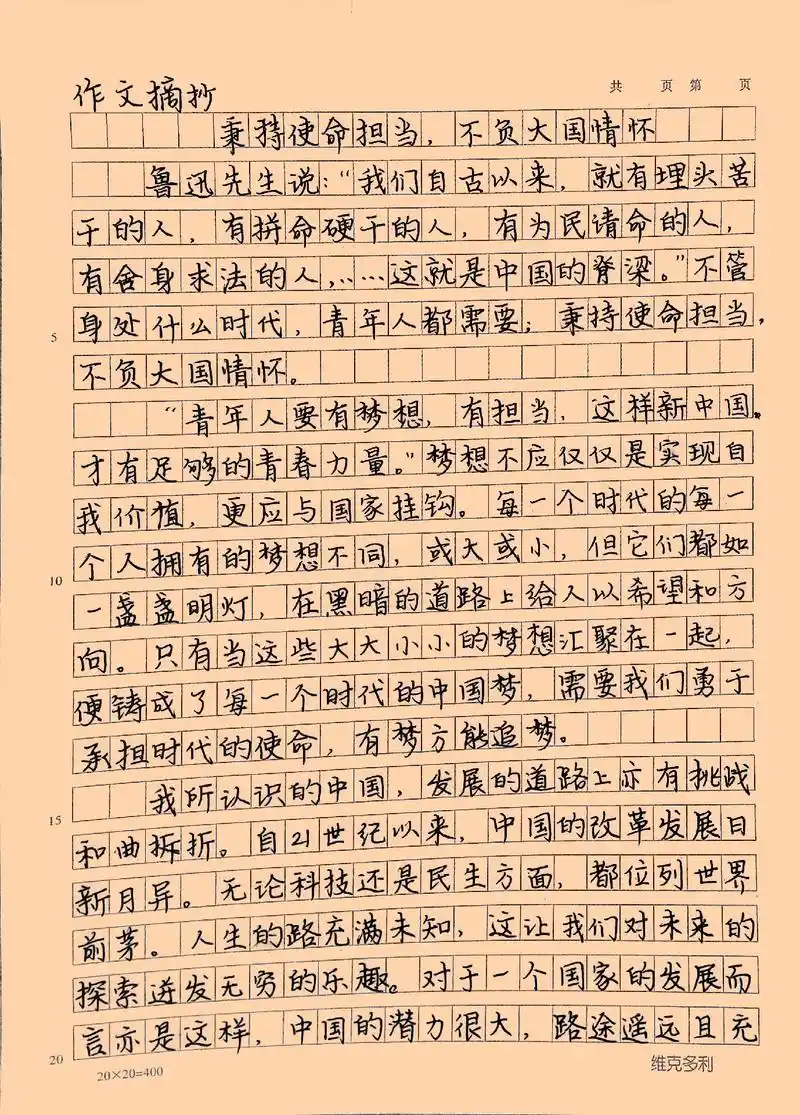 共 页 第 页
作文摘抄
秉持使命担当，不负大国情怀
鲁迅先生说：“我们自古以来，就有埋头苦
干的人，有拼命硬干的人，有为民请命的人，
有舍身求法的人，……这就是中国的脊梁。”不管
身处什么时代，青年人都需要：秉持使命担当，
5
不负大国情怀。
“青年人要有梦想，有担当，这样新中国
才有足够的青春力量。”梦想不应仅仅是实现自
我价值，更应与国家挂钩。每一个时代的每一
个人拥有的梦想不同，或大或小，但它们都如
10
一盏盏明灯，在黑暗的道路上给人以希望和方
向。只有当这些大大小小的梦想汇聚在一起，
便铸成了每一个时代的中国梦，需要我们勇于
承担时代的使命，有梦方能追梦。
我所认识的中国，发展的道路上亦有挑战
15
和曲拆折。自21世纪以来，中国的改革发展日
新月异。无论科技还是民生方面，都位列世界
前茅。人生的路充满未知，这让我们对未来的
探索迸发无穷的乐趣。对于一个国家的发展而
言亦是这样，中国的潜力很大，路途遥远且充
20
20×20=400
维克多利